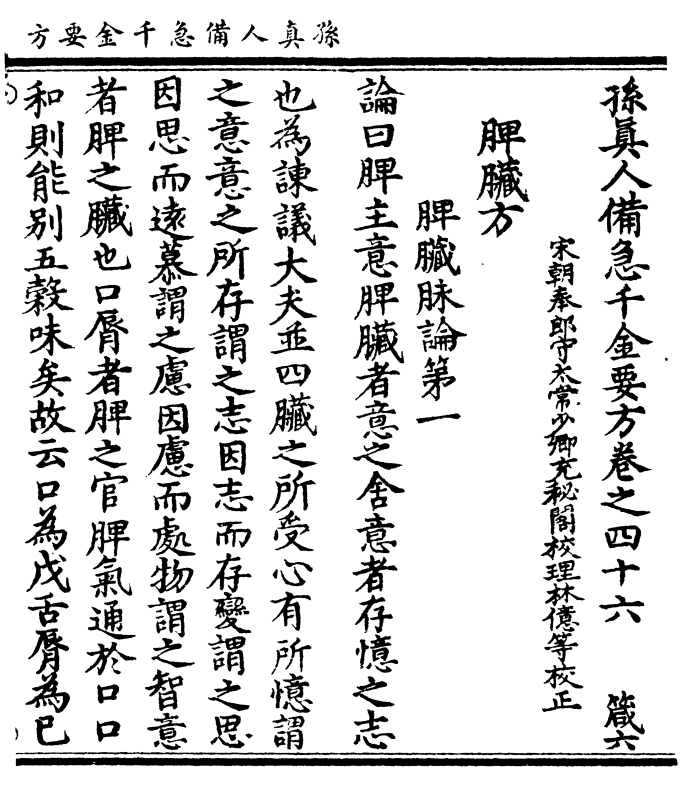 孫真人備急千金要方
孫真人備急千金要方卷之四十六 箴六
宋朝奉郎守太常少卿充秘閣校理林億等校正
脾臟方
脾臟脉論第一
論曰脾主意脾臟者意之舍意者存憶之志
也為諫議大夫並四臟之所受心有所憶謂
之意意之所存謂之志因志而存變謂之思
因思而遠慕謂之慮因慮而處物謂之智意
者脾之臟也口脣者脾之官脾氣通於口口
和則能別五穀味矣故云口為戊舌脣為巳